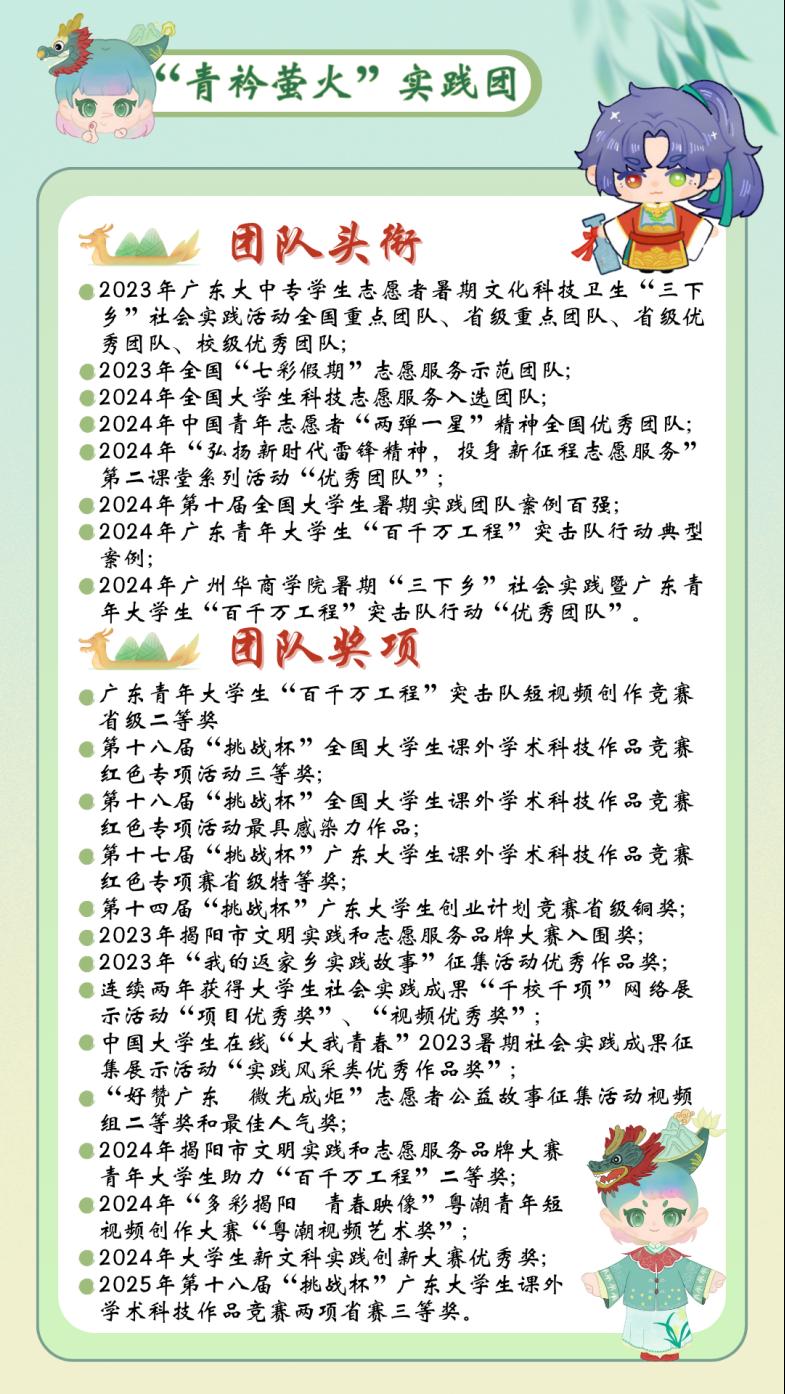 “青衿萤火”实践团
团队头衔
2023年广东大中专学生志愿者暑期文化科技卫生“三下
乡”社会实践活动全国重点团队、省级重点团队、省级优
秀团队、校级优秀团队;
2023年全国“七彩假期”志愿服务示范团队;
2024年全国大学生科技志愿服务入选团队;
2024年中国青年志愿者“两弹一星”精神全国优秀团队;
2024年“弘扬新时代雷锋精神，投身新征程志愿服务”
第二课堂系列活动“优秀团队”;
2024年第十届全国大学生暑期实践团队案例百强;
2024年广东青年大学生“百千万工程”突击队行动典型
案例;
2024年广州华商学院暑期“三下乡”社会实践暨广东青
年大学生“百千万工程”突击队行动“优秀团队”。
团队奖项
广东青年大学生“百千万工程”突击队短视频创作竞赛
省级二等奖
第十八届“挑战杯”全国大学生课外学术科技作品竞赛
红色专项活动三等奖;
第十八届“挑战杯”全国大学生课外学术科技作品竞赛
红色专项活动最具感染力作品;
第十七届“挑战杯”广东大学生课外学术科技作品竞赛
红色专项赛省级特等奖;
第十四届“挑战杯”广东大学生创业计划竞赛省级铜奖;
2023年揭阳市文明实践和志愿服务品牌大赛入围奖;
2023年“我的返家乡实践故事”征集活动优秀作品奖;
连续两年获得大学生社会实践成果“千校千项”网络展
示活动“项目优秀奖”、“视频优秀奖”;
中国大学生在线“大我青春”2023暑期社会实践成果征
集展示活动“实践风采类优秀作品奖”;
“好赞广东　微光成炬”志愿者公益故事征集活动视频
组二等奖和最佳人气奖;
2024年揭阳市文明实践和志愿服务品牌大赛
青年大学生助力“百千万工程”二等奖;
2024年“多彩揭阳　青春映像”粤潮青年短
视频创作大赛“粤潮视频艺术奖”;
2024年大学生新文科实践创新大赛优秀奖;
2025年第十八届“挑战杯”广东大学生课外
学术科技作品竞赛两项省赛三等奖。